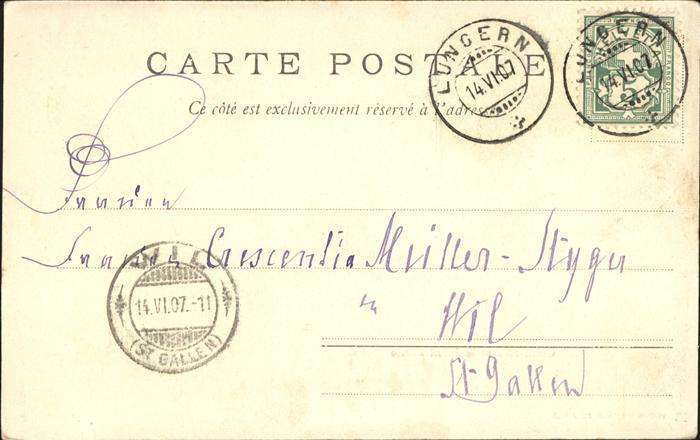 CARTE POSTALE
LUNGERN
14.VI.07
LUNGERN
14.VI.07
5
Ce côté est exclusivement réservé à l'adresse
Familien
Crescentia Müller-Styger
in
Wil
St Gallen
WIL
14.VI.07.-11
(ST GALLEN)